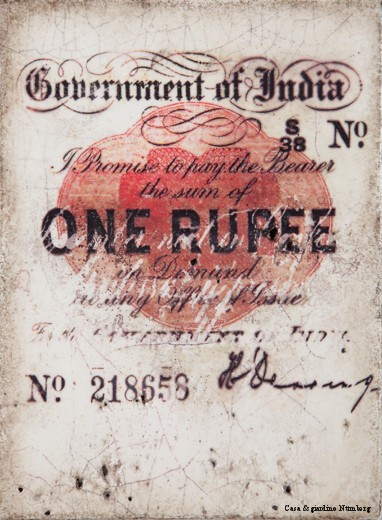 Government of India
S
38 No
I Promise to pay the Bearer
the sum of
ONE RUPEE
on Demand
at any Office of Issue
For GOVERNMENT OF INDIA
No 218658
Casa & giardino Nürnberg